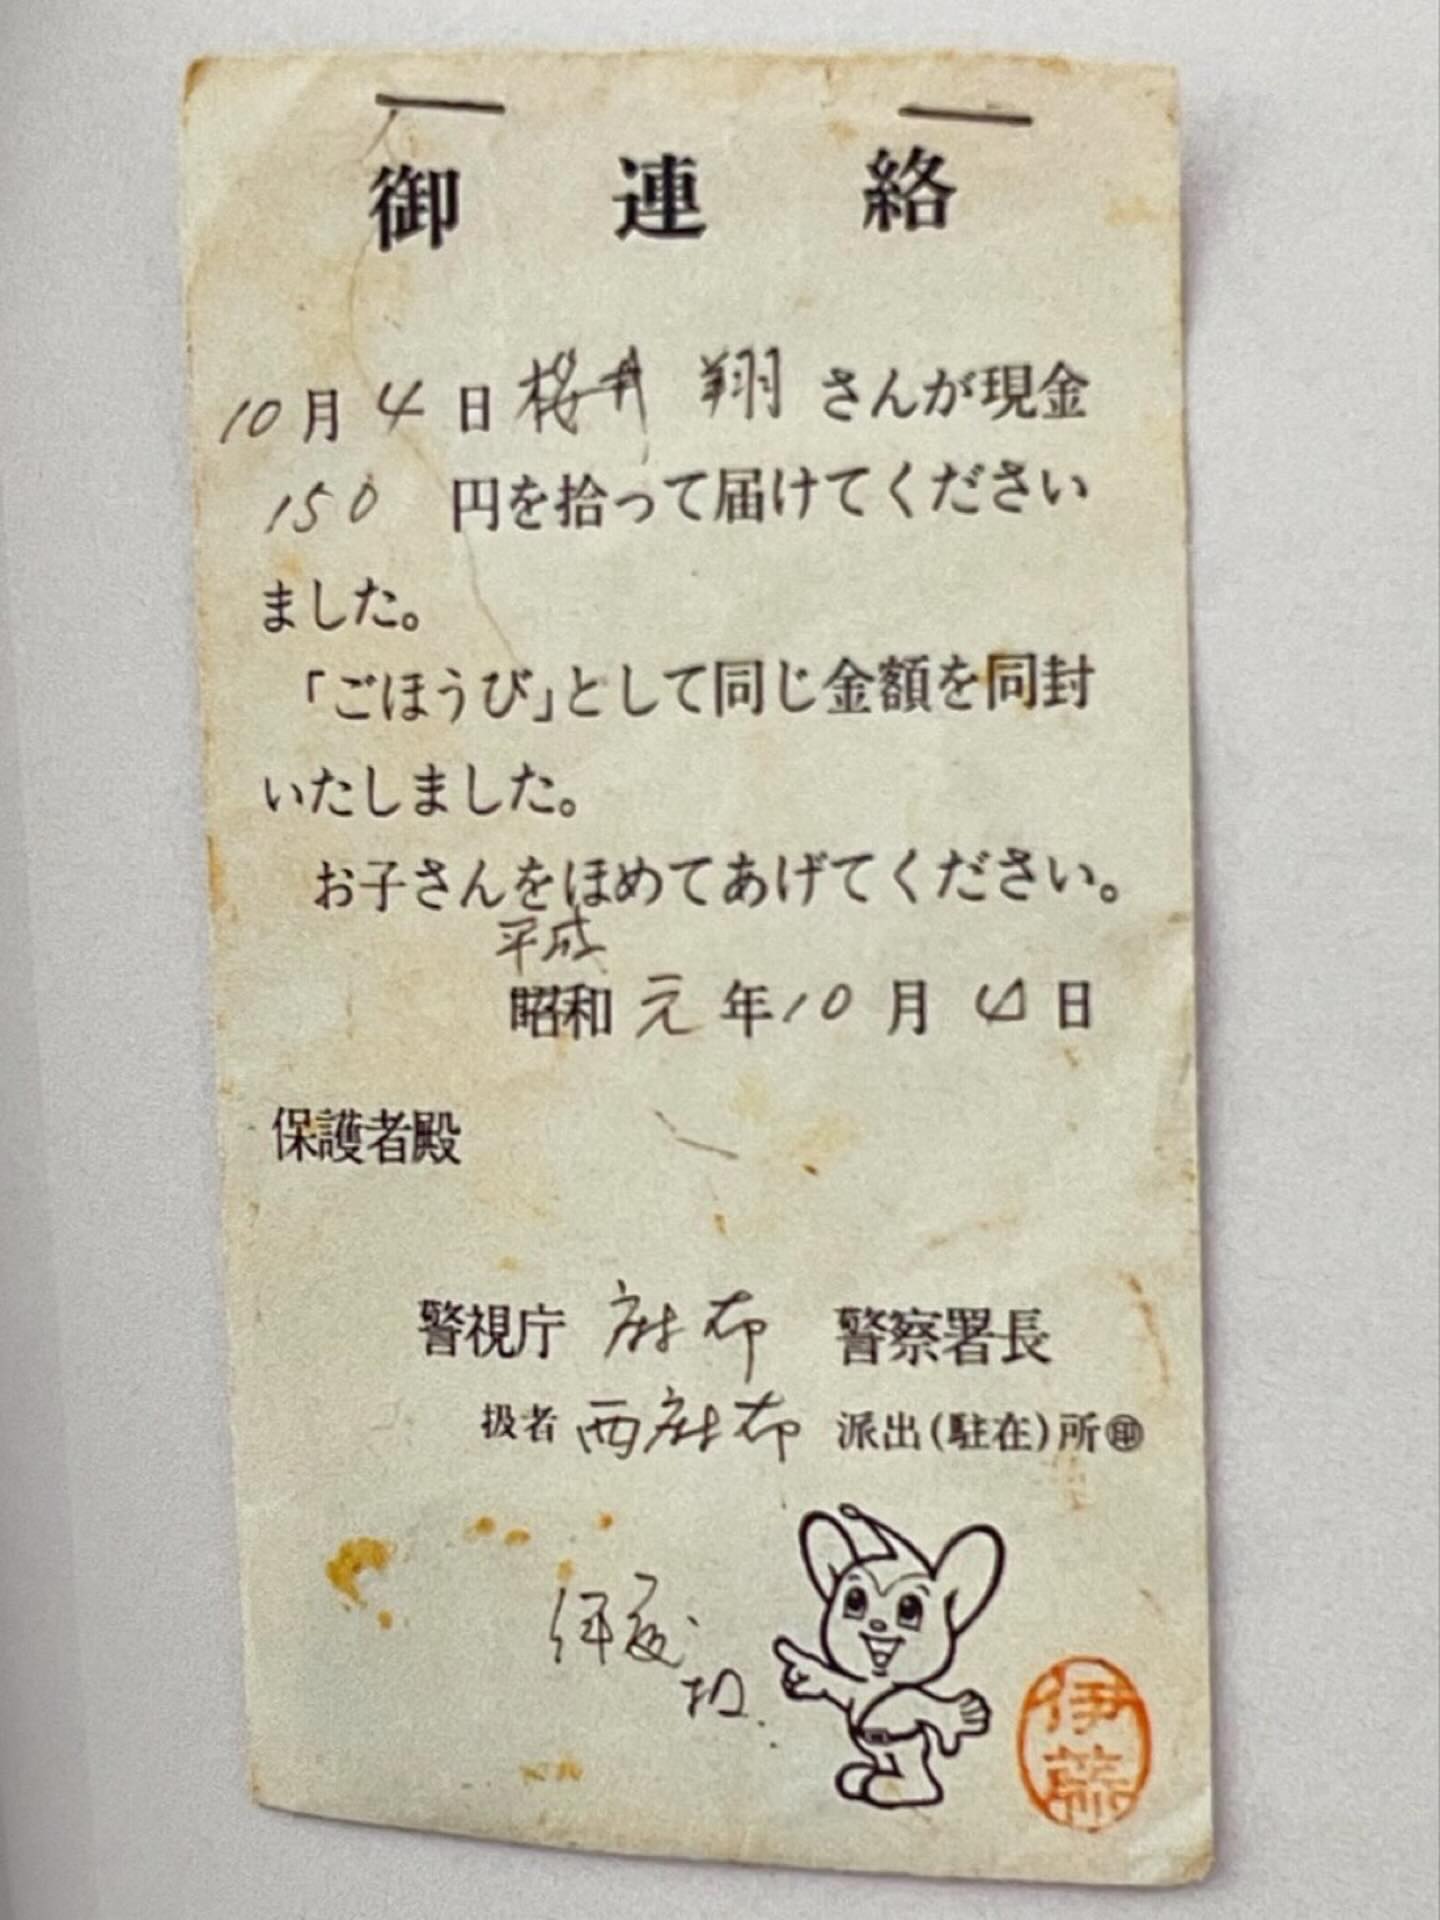 御連絡
10月4日桜井 翔さんが現金
150円を拾って届けてください
ました。
「ごほうび」として同じ金額を同封
いたしました。
お子さんをほめてあげてください。
平成
昭和元年10月4日
保護者殿
警視庁 麻布 警察署長
扱者 西麻布 派出(駐在)所㊞
伊藤